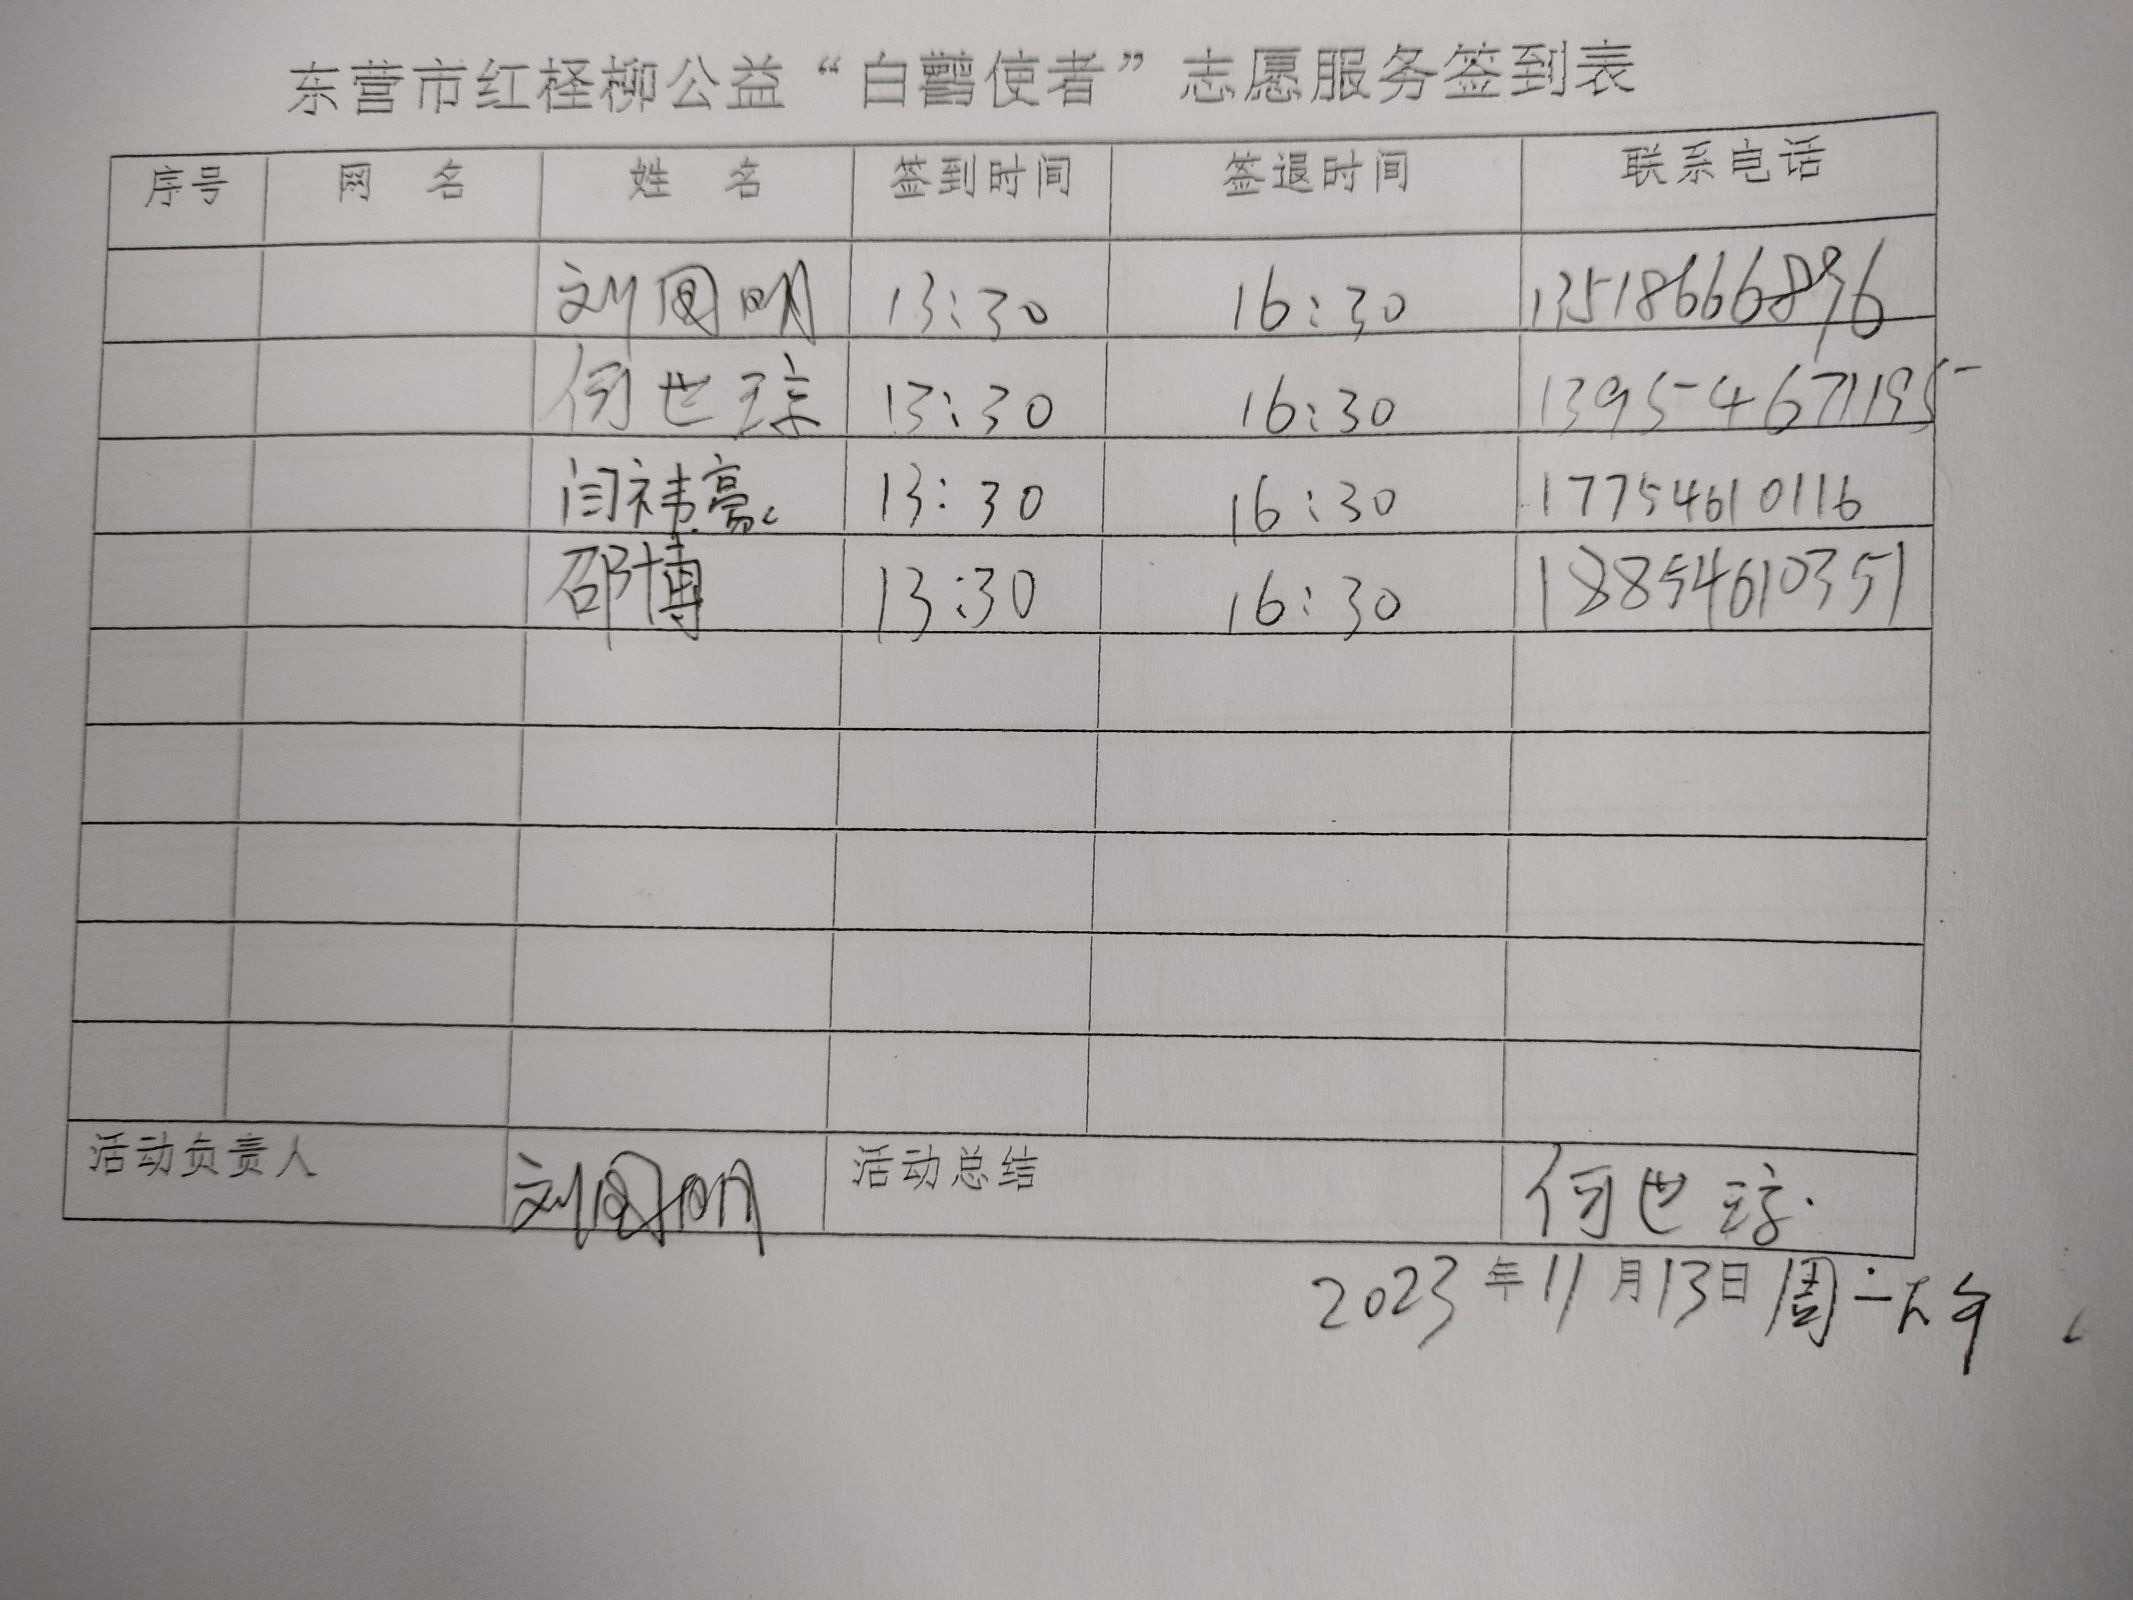 东营市红柽柳公益“白鹳使者”志愿服务签到表
序号 网 名 姓 名 签到时间 签退时间 联系电话
刘国明 13:30 16:30 13518666896
何世琼 13:30 16:30 13954671195
闫祎亮 13:30 16:30 17754610116
邵博 13:30 16:30 18854610351
活动负责人 刘国明 活动总结 何世琼
2023年11月13日周一下午